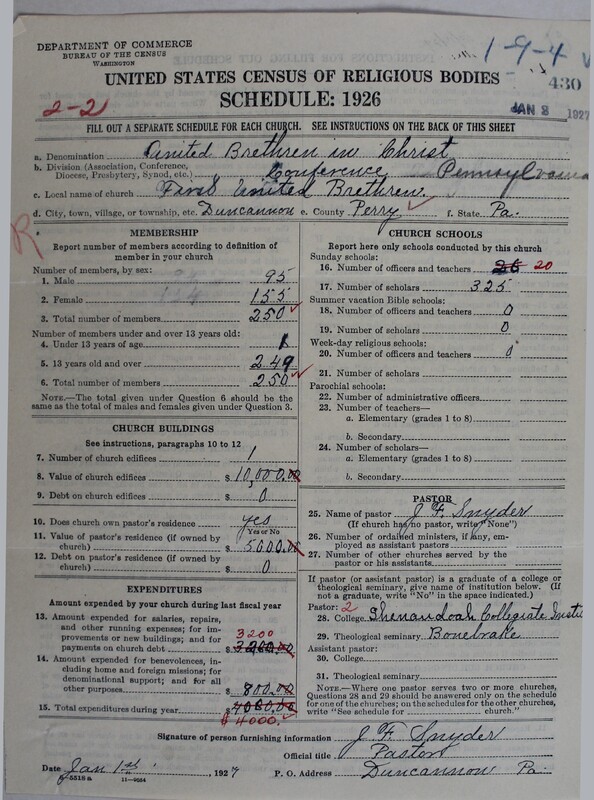 DEPARTMENT OF COMMERCE
BUREAU OF THE CENSUS
WASHINGTON
1-9-4
430
JAN 3 1927
UNITED STATES CENSUS OF RELIGIOUS BODIES
SCHEDULE: 1926
2-2
FILL OUT A SEPARATE SCHEDULE FOR EACH CHURCH. SEE INSTRUCTIONS ON THE BACK OF THIS SHEET
a. Denomination United Brethren in Christ
b. Division (Association, Conference, Diocese, Presbytery, Synod, etc.) Conference Pennsylvania
c. Local name of church First United Brethren.
d. City, town, village, or township, etc. Duncannon e. County Perry f. State Pa.
R
MEMBERSHIP
Report number of members according to definition of
member in your church
Number of members, by sex:
1. Male 95
2. Female 155
3. Total number of members 250
Number of members under and over 13 years old:
4. Under 13 years of age 1
5. 13 years old and over 249
6. Total number of members 250
NOTE.—The total given under Question 6 should be the
same as the total of males and females given under Question 3.
CHURCH BUILDINGS
See instructions, paragraphs 10 to 12
7. Number of church edifices 1
8. Value of church edifices $ 10,000.00
9. Debt on church edifices $ 0
10. Does church own pastor's residence yes
Yes or No
11. Value of pastor's residence (if owned by
church) $ 5000.00
12. Debt on pastor's residence (if owned by
church) $ 0
EXPENDITURES
Amount expended by your church during last fiscal year
13. Amount expended for salaries, repairs,
and other running expenses; for im-
provements or new buildings; and for
payments on church debt $ 3200.00
3200
14. Amount expended for benevolences, in-
cluding home and foreign missions; for
denominational support; and for all
other purposes $ 800.00
15. Total expenditures during year $ 4000.00
$ 4000.
CHURCH SCHOOLS
Report here only schools conducted by this church
Sunday schools:
16. Number of officers and teachers 20
17. Number of scholars 325
Summer vacation Bible schools:
18. Number of officers and teachers 0
19. Number of scholars 0
Week-day religious schools:
20. Number of officers and teachers 0
21. Number of scholars
Parochial schools:
22. Number of administrative officers
23. Number of teachers—
a. Elementary (grades 1 to 8)
b. Secondary
24. Number of scholars—
a. Elementary (grades 1 to 8)
b. Secondary
PASTOR
25. Name of pastor J. F. Snyder
(If church has no pastor, write "None")
26. Number of ordained ministers, if any, em-
ployed as assistant pastors
27. Number of other churches served by the
pastor or his assistants
If pastor (or assistant pastor) is a graduate of a college or
theological seminary, give name of institution below. (If
not a graduate, write "No" in the space indicated.)
Pastor: 2
28. College Shenandoah Collegiate Insti
29. Theological seminary Bonebrake
Assistant pastor:
30. College
31. Theological seminary
NOTE.—Where one pastor serves two or more churches,
Questions 28 and 29 should be answered only on the schedule
for one of the churches; on the schedules for the other churches,
write "See schedule for church."
Signature of person furnishing information J. F. Snyder
Official title Pastor
Date Jan 1st, 1927 P. O. Address Duncannon Pa.
5518 a 11—9664